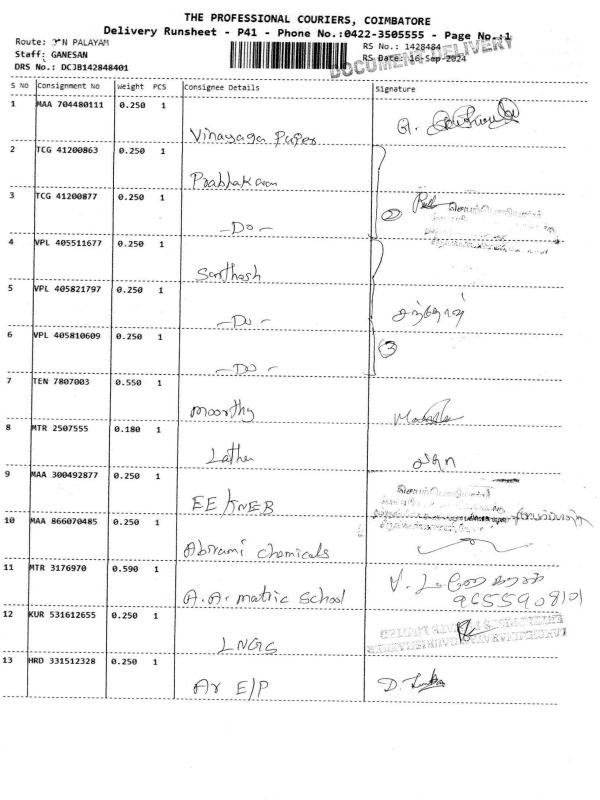 THE PROFESSIONAL COURIERS, COIMBATORE
Delivery Runsheet - P41 - Phone No.:0422-3505555 - Page No.:1
Route: N PALAYAM
RS No.: 1428484
Staff: GANESAN
RS Date: 16-Sep-2024
DOCUMENT DELIVERY
DRS No.: DCJB142848401
S NO Consignment No Weight PCS Consignee Details Signature
1 MAA 704480111 0.250 1 Vinayaga Paper
2 TCG 41200863 0.250 1 Prabhakaran
3 TCG 41200877 0.250 1 -Do- 2
4 VPL 405511677 0.250 1 Santhosh
5 VPL 405821797 0.250 1 -Do- சந்தோஷ்
6 VPL 405810609 0.250 1 -Do- 3
7 TEN 7807003 0.550 1 Moorthy
8 MTR 2507555 0.180 1 Latha லதா
9 MAA 300492877 0.250 1 EE/TNEB
10 MAA 866070485 0.250 1 Abirami Chemicals
11 MTR 3176970 0.590 1 A.A. matric School
12 KUR 531612655 0.250 1 LNGS
13 HRD 331512328 0.250 1 Ar E/P